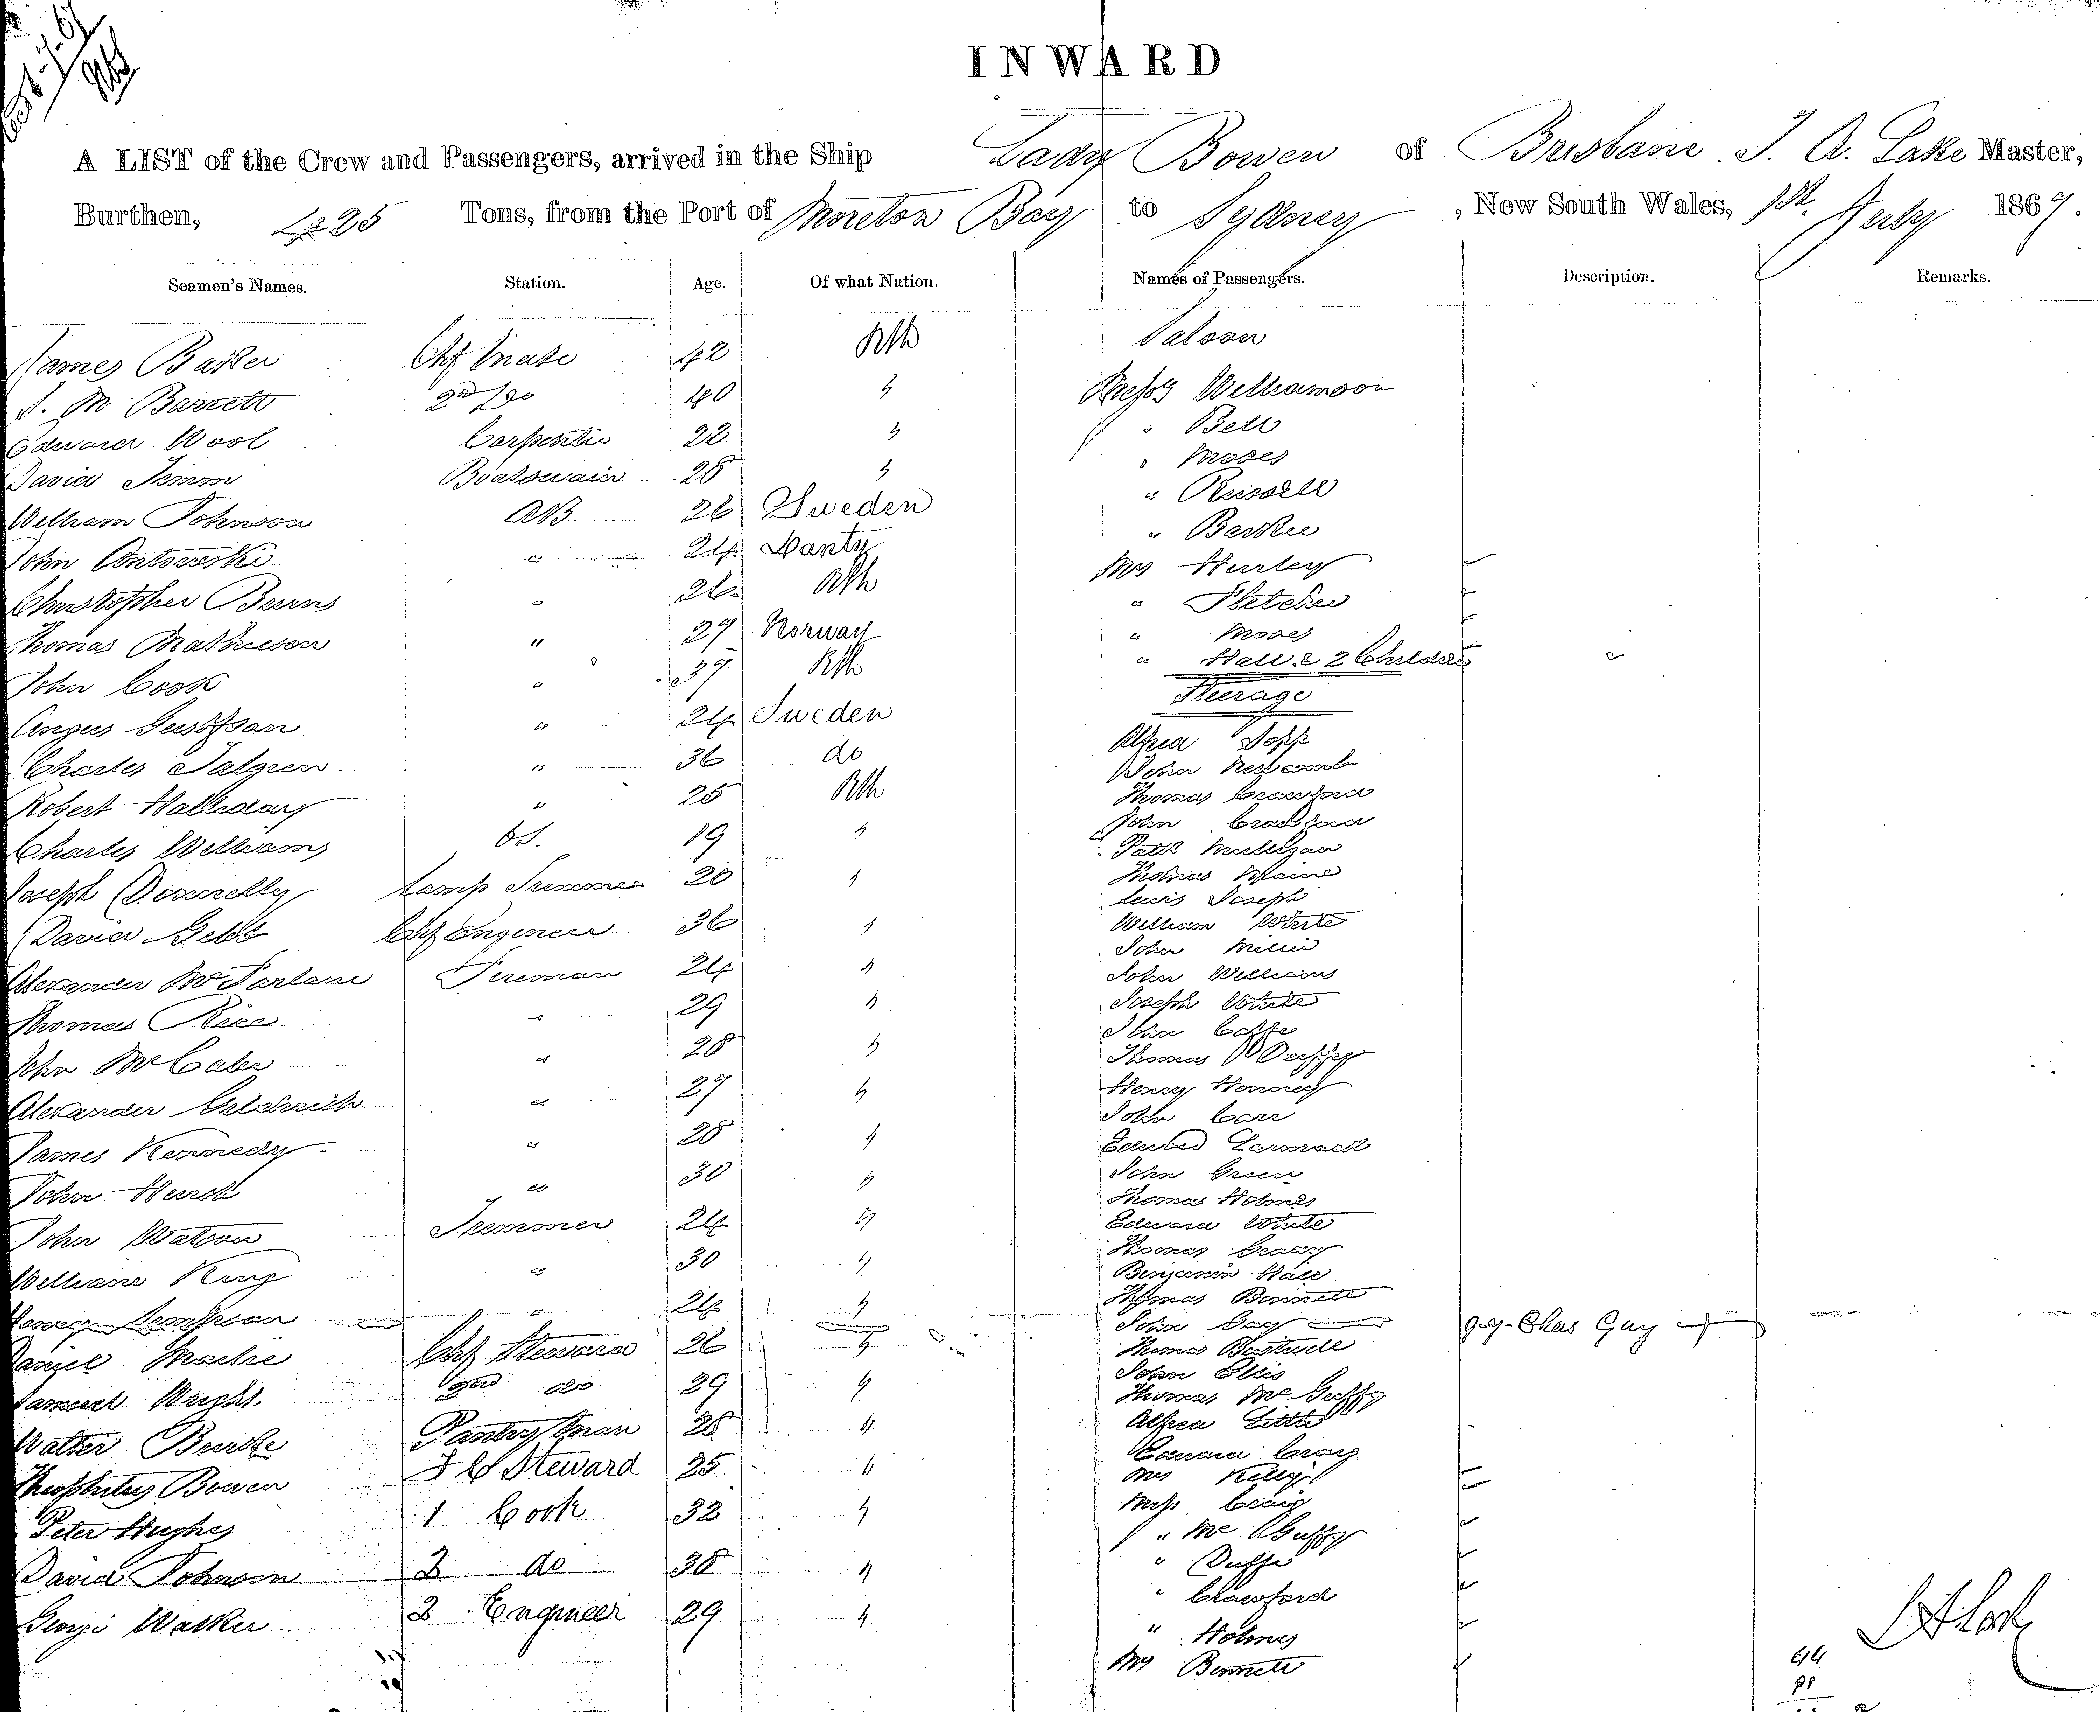 INWARD
A LIST of the Crew and Passengers, arrived in the Ship Lady Bowen of Brisbane J. A. Lake Master,
Burthen, 425 Tons, from the Port of Moreton Bay to Sydney, New South Wales, 1st July 1867.
Seamen's Names. Station. Age. Of what Nation. Names of Passengers. Description. Remarks.
James Barker Chf Mate 42 Bth
J. M Barrett 2nd Do 40 "
Edward Wool Carpenter 22 "
David Simm Boatswain 28 "
William Johnson AB 26 Sweden
John " 24 Dantz
Christopher Burns " 26 Bth
Thomas Mathieson " 27 Norway
John Cook " 37 Bth
Angus Gustafson " 24 Sweden
Charles Salgren " 36 do
Robert Halliday " 25 Bth
Charles Williams O.S. 19 "
Joseph Donnelly Lamp Trimmer 20 "
David Gebb Chf Engineer 36 "
Alexander McFarlane Fireman 24 "
Thomas Rice " 29 "
John McCabe " 28 "
Alexander " 27 "
James Kennedy " 28 "
John Hurst " 30 "
John Watson Trimmer 24 "
William King " 30 "
Henry " 24 "
Daniel Chf Steward 26 "
Samuel Wright 2nd do 29 "
Walter Burke Pantryman 28 "
Theophilus Bowen F C Steward 25 "
Peter Hughes 1 Cook 32 "
David Johnson 2 do 38 "
George Walker 2 Engineer 29 "
Saloon
Messrs Williamson
" Bell
" Moses
" Russell
" Barker
Mrs Hurley
" Fletcher
" Moses
" Hall & 2 Children
Steerage
Alfred Topp
John Newcomb
Thomas Crawford
John Crawford
Patk Mulligan
Thomas
Lewis Joseph
William White
John Miller
John Williams
Joseph White
John
Thomas
Henry
John Carr
Edward
John Green
Thomas Holmes
Edward White
Thomas
Benjamin Hall
Thomas Bennett
John Gay qy- Chas Guy
Thomas
John Ellis
Thomas McGuffy
Alfred Little
Edward Craig
Mrs Kelly
Miss Craig
" McGuffy
" Duffe
" Crawford
" Holmes
Mrs Bennett